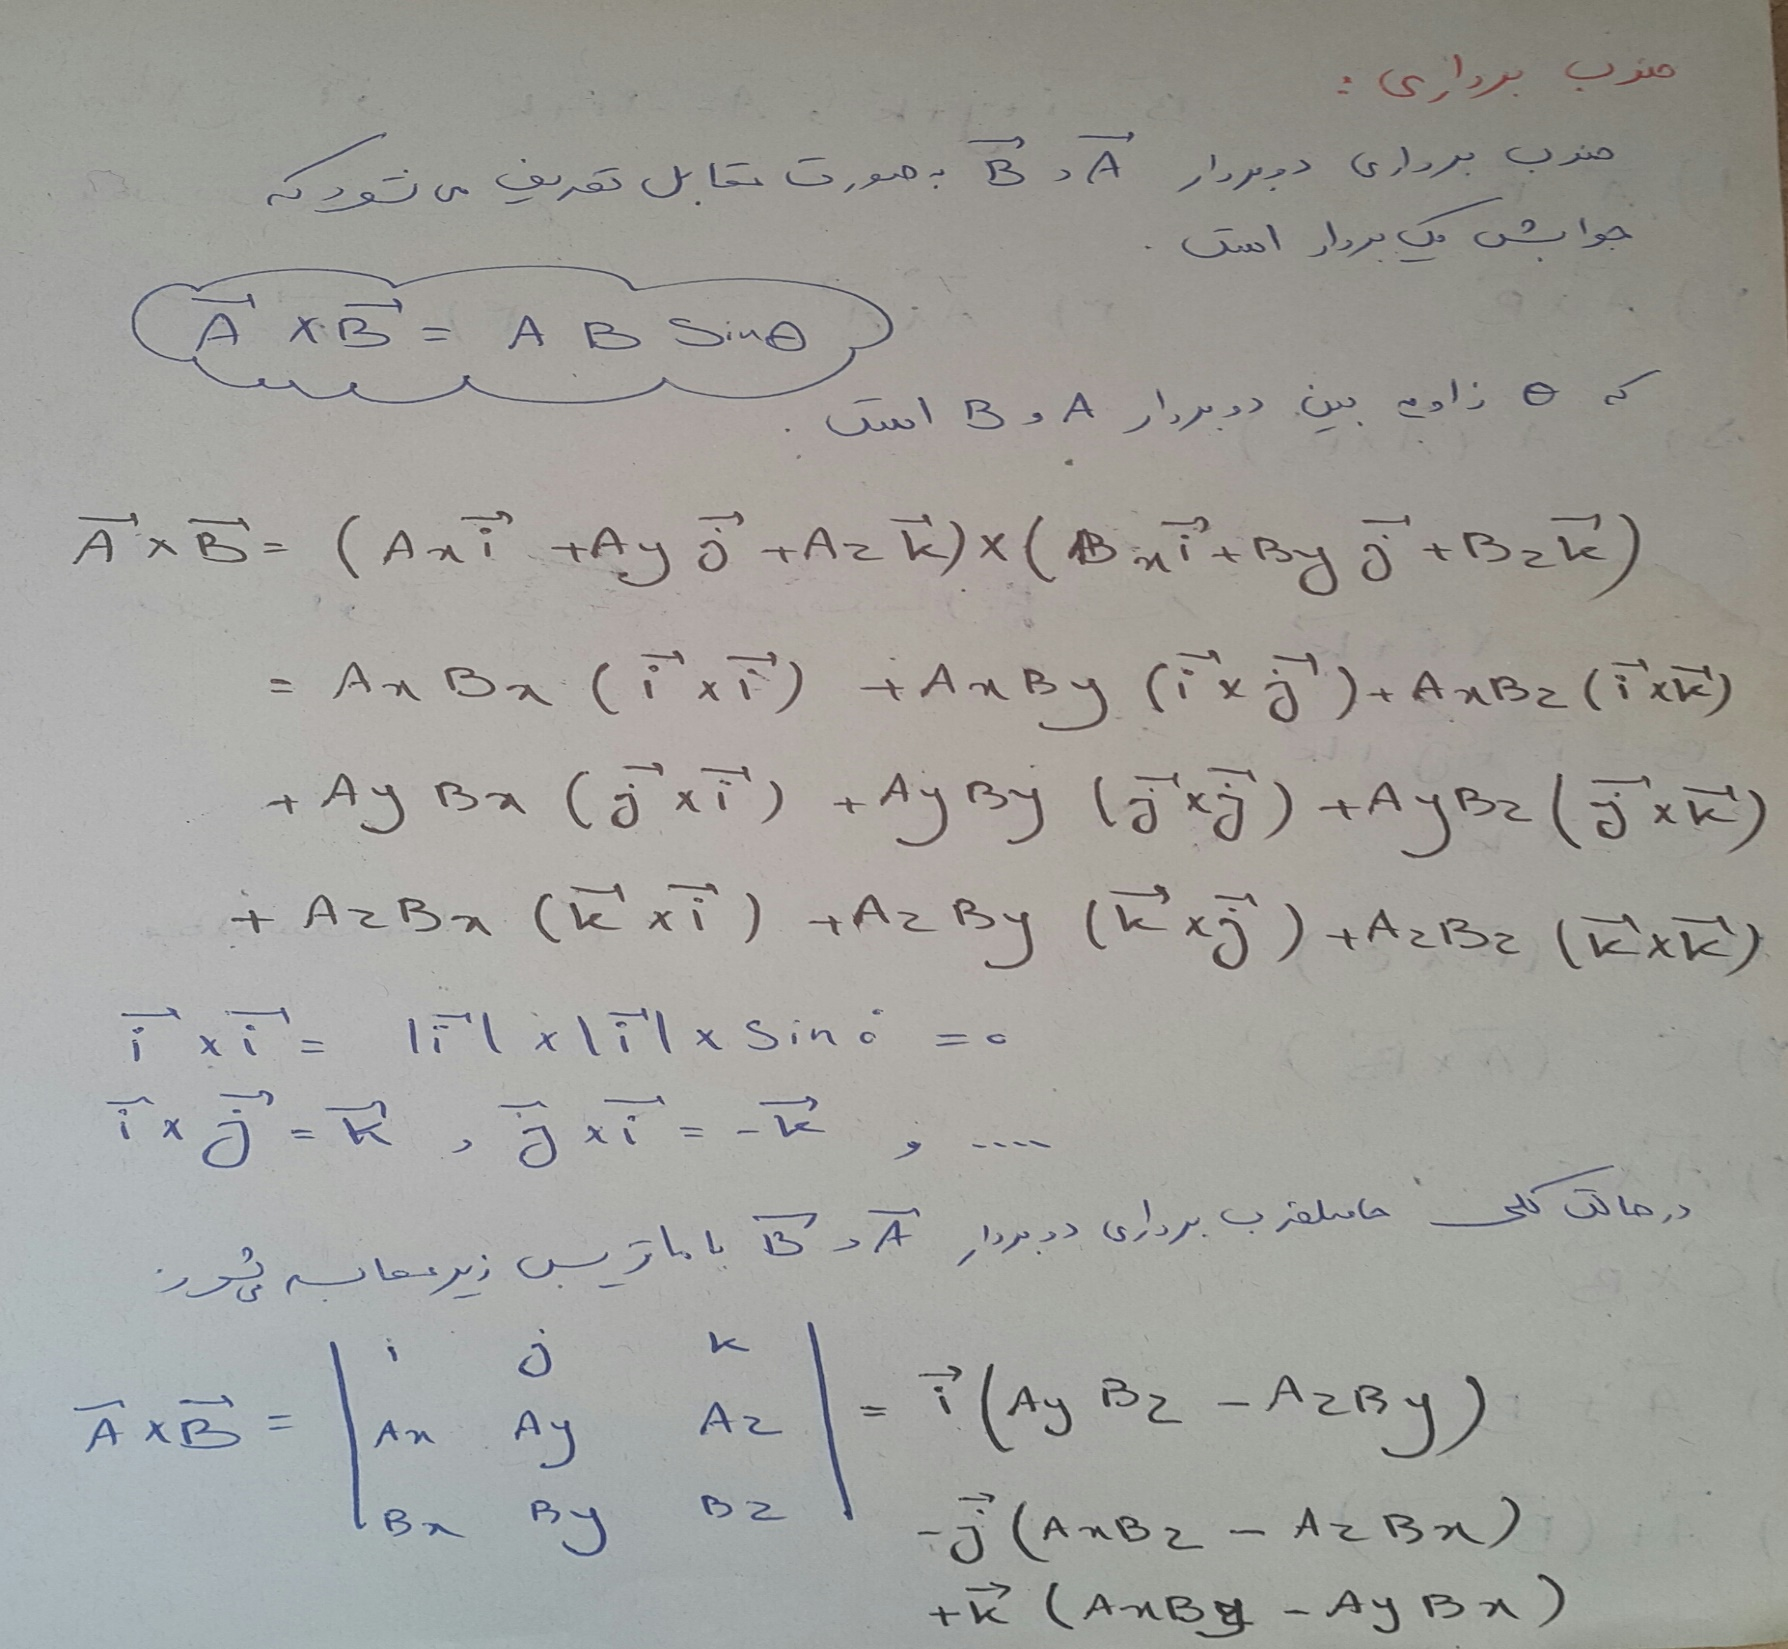 ضرب برداری :
ضرب برداری دو بردار A⃗ و B⃗ به صورت مقابل تعریف می شود که
جوابش یک بردار است .
A⃗ × B⃗ = A B Sinθ
که θ زاویه بین دو بردار A و B است .
A⃗ × B⃗ = (Ax i⃗ + Ay j⃗ + Az k⃗) × (Bx i⃗ + By j⃗ + Bz k⃗)
= Ax Bx (i⃗ × i⃗) + Ax By (i⃗ × j⃗) + Ax Bz (i⃗ × k⃗)
+ Ay Bx (j⃗ × i⃗) + Ay By (j⃗ × j⃗) + Ay Bz (j⃗ × k⃗)
+ Az Bx (k⃗ × i⃗) + Az By (k⃗ × j⃗) + Az Bz (k⃗ × k⃗)
i⃗ × i⃗ = |i⃗| × |i⃗| × Sin 0° = 0
i⃗ × j⃗ = k⃗ , j⃗ × i⃗ = -k⃗ , و ....
در حالت کلی حاصلضرب برداری دو بردار A⃗ و B⃗ با ماتریس زیر محاسبه می شود :
A⃗ × B⃗ = | i j k | = i⃗ (Ay Bz - Az By)
| Ax Ay Az |
| Bx By Bz | - j⃗ (Ax Bz - Az Bx)
+ k⃗ (Ax By - Ay Bx)